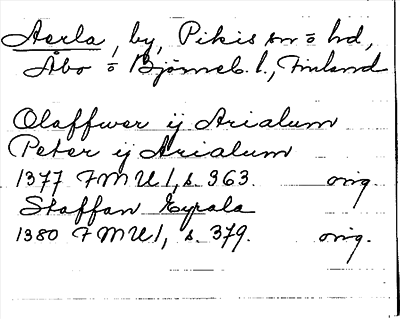 Aerla, by, Pikis sn o hd,
Åbo o Björneb. l., Finland
Olaffwer ij Arialum
Peter ij Arialum
1377 FMU 1, s. 363. orig.
Staffan Eyrala
1380 FMU 1, s. 379. orig.